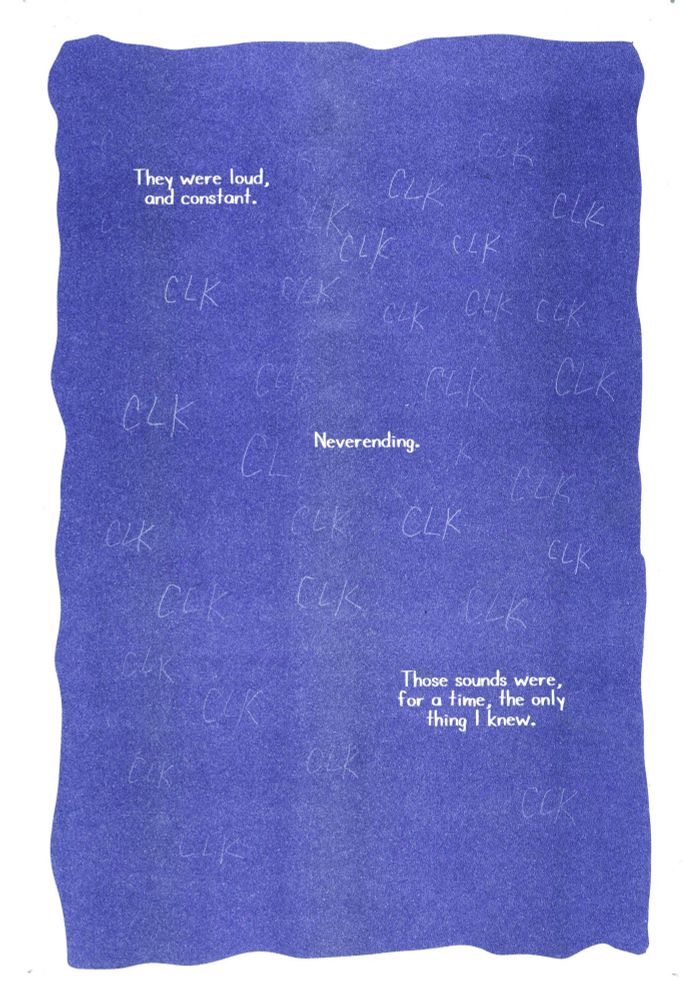 CLK
CLK
They were loud,
and constant.
CLK
CLK
CLK
CLK
CLK
CLK
CLK
CLK
CLK
CLK
CLK
CLK
CLK
CLK
Neverending.
CLK
CLK
CLK
CLK
CLK
CLK
CLK
CLK
CLK
Those sounds were,
for a time, the only
thing I knew.
CLK
CLK
CLK
CLK
CLK